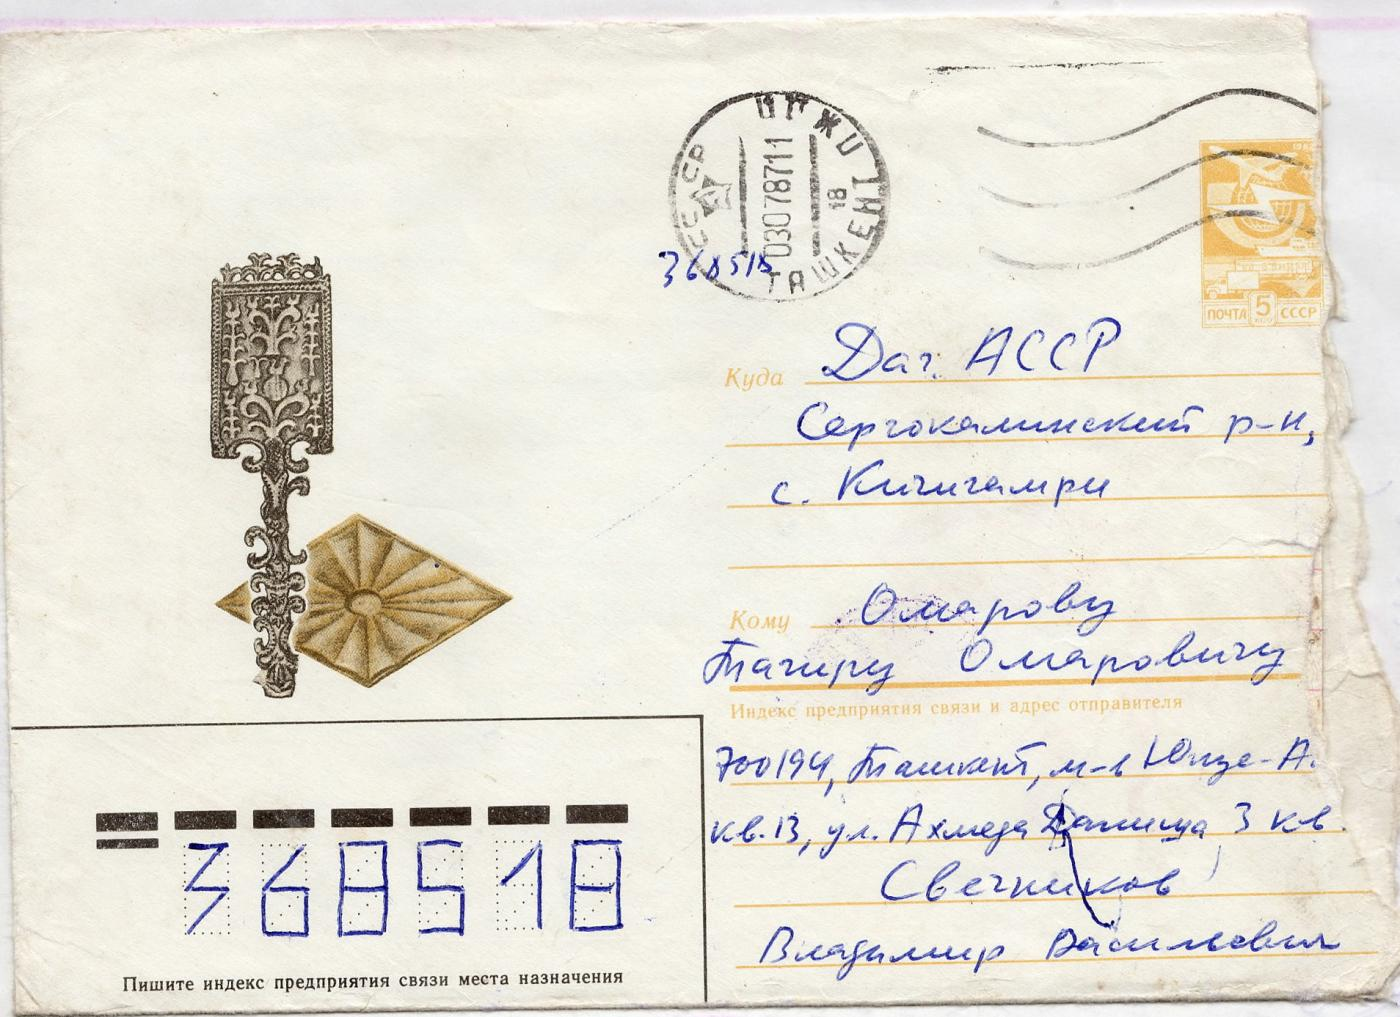 СССР
ТАШКЕНТ
030787 11
18
ПОЧТА 5 КОП СССР
368518
Куда Даг. АССР
Сергокалинский р-н,
с. Кичигамри
Кому Омарову
Тагиру Омаровичу
Индекс предприятия связи и адрес отправителя
700194, Ташкент, м-в Юнус-А.
кв. 13, ул. Ахмеда Даниша 3 кв.
Свечников
Владимир Васильевич
368518
Пишите индекс предприятия связи места назначения